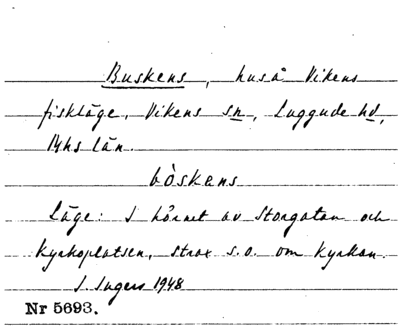 Buskens, hus å Vikens
fiskläge, Vikens sn, Luggude hd,
Mhs län.
bòskens
Läge: I hörnet av Storgatan och
Kyrkoplatsen, strax s.o. om kyrkan.
I. Ingers 1948
Nr 5693.